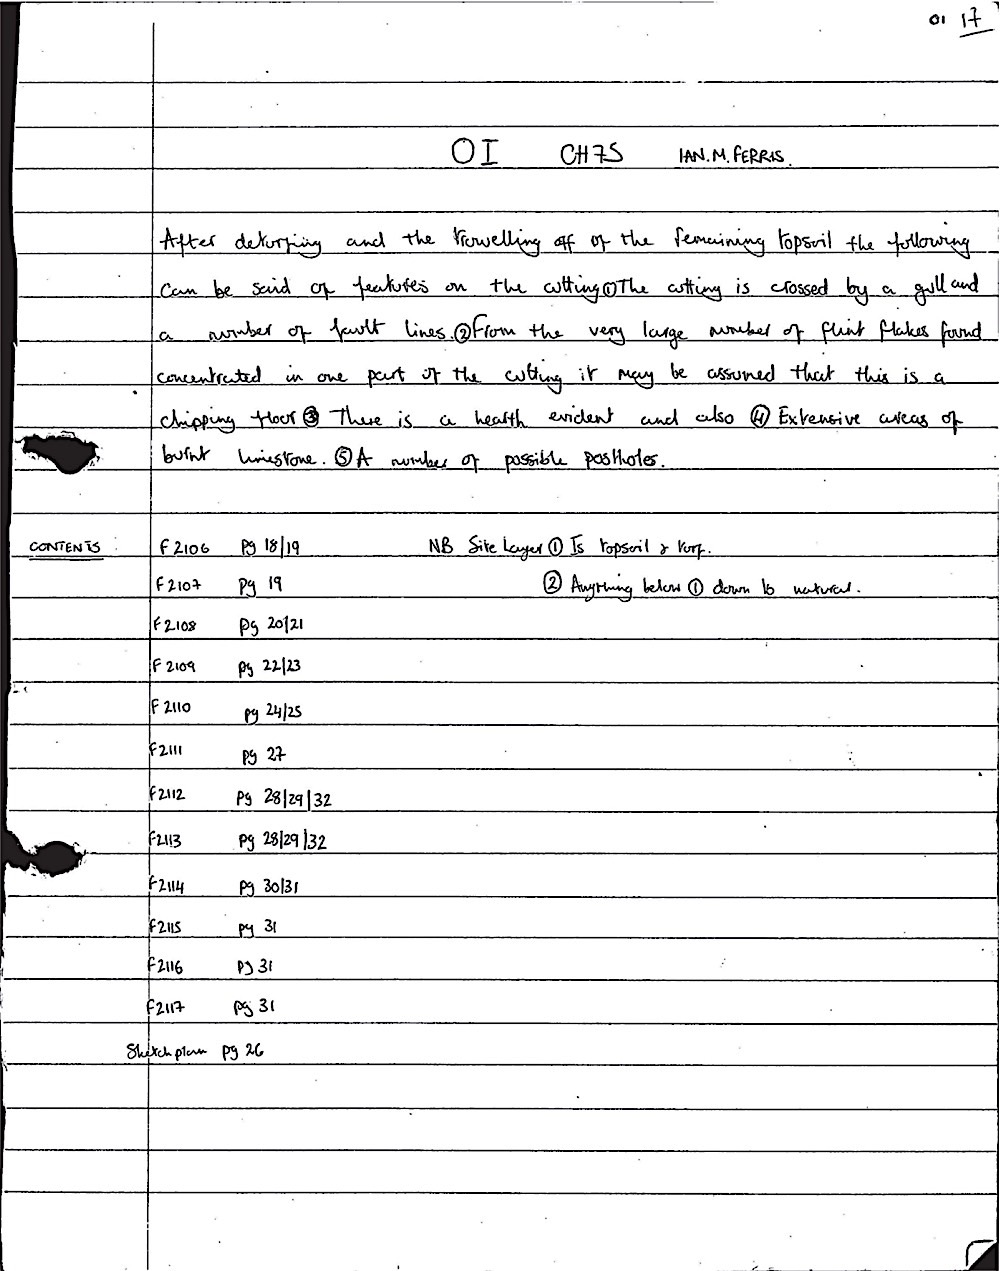 OI 17
OI CH75 IAN.M.FERRIS.
After deturfing and the trowelling off of the remaining topsoil the following
can be said of features on the cutting ① The cutting is crossed by a gull and
a number of fault lines. ② From the very large number of flint flakes found
concentrated in one part of the cutting it may be assumed that this is a
chipping floor ③ There is a hearth evident and also ④ Extensive areas of
burnt limestone. ⑤ A number of possible postholes.
CONTENTS : F2106 pg 18/19 NB Site Layer ① Is topsoil & turf.
F2107 pg 19 ② Anything below ① down to natural.
F2108 pg 20/21
F2109 pg 22/23
F2110 pg 24/25
F2111 pg 27
F2112 pg 28/29/32
F2113 pg 28/29/32
F2114 pg 30/31
F2115 pg 31
F2116 pg 31
F2117 pg 31
Sketch plan pg 26